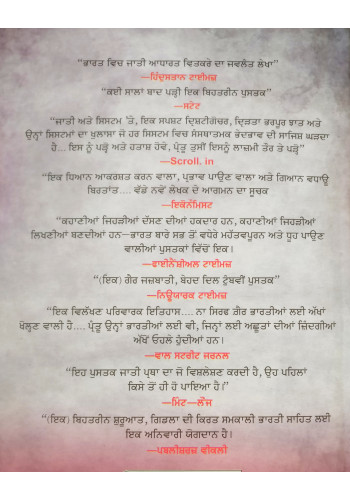 “ਭਾਰਤ ਵਿਚ ਜਾਤੀ ਆਧਾਰਤ ਵਿਤਕਰੇ ਦਾ ਜਵਲੰਤ ਲੇਖਾ”
—ਹਿੰਦੁਸਤਾਨ ਟਾਈਮਜ਼
“ਕਈ ਸਾਲਾਂ ਬਾਦ ਪੜ੍ਹੀ ਇਕ ਬਿਹਤਰੀਨ ਪੁਸਤਕ”
—ਸਟੇਟ
“ਜਾਤੀ ਅਤੇ ਸਿਸਟਮ ’ਤੇ, ਇਕ ਸਪਸ਼ਟ ਦ੍ਰਿਸ਼ਟੀਗੋਚਰ, ਦ੍ਰਿੜਤਾ ਭਰਪੂਰ ਝਾਤ ਅਤੇ
ਉਨ੍ਹਾਂ ਸਿਸਟਮਾਂ ਦਾ ਖੁਲਾਸਾ ਜੋ ਹਰ ਸਿਸਟਮ ਵਿਚ ਸੰਸਥਾਤਮਕ ਭੇਦਭਾਵ ਦੀ ਸਾਜਿਸ਼ ਘੜਦਾ
ਹੈ... ਇਸ ਨੂੰ ਪੜ੍ਹੋ ਅਤੇ ਹਤਾਸ਼ ਹੋਵੋ, ਪ੍ਰੰਤੂ ਤੁਸੀਂ ਇਸਨੂੰ ਲਾਜ਼ਮੀ ਤੌਰ ਤੇ ਪੜ੍ਹੋ”
—Scroll. in
“ਇਕ ਧਿਆਨ ਆਕਰਸ਼ਤ ਕਰਨ ਵਾਲਾ, ਪ੍ਰਭਾਵ ਪਾਉਣ ਵਾਲਾ ਅਤੇ ਗਿਆਨ ਵਧਾਊ
ਬਿਰਤਾਂਤ.... ਵੱਡੇ ਨਵੇਂ ਲੇਖਕ ਦੇ ਆਗਮਨ ਦਾ ਸੂਚਕ
—ਇਕੋਨੌਮਿਸਟ
“ਕਹਾਣੀਆਂ ਜਿਹੜੀਆਂ ਦੱਸਣ ਦੀਆਂ ਹਕਦਾਰ ਹਨ, ਕਹਾਣੀਆਂ ਜਿਹੜੀਆਂ
ਲਿਖਣੀਆਂ ਬਣਦੀਆਂ ਹਨ—ਭਾਰਤ ਬਾਰੇ ਸਭ ਤੋਂ ਵਧੇਰੇ ਮਹੱਤਵਪੂਰਨ ਅਤੇ ਧੂਹ ਪਾਉਣ
ਵਾਲੀਆਂ ਪੁਸਤਕਾਂ ਵਿੱਚੋਂ ਇਕ।
—ਫਾਈਨੈਂਸ਼ੀਅਲ ਟਾਈਮਜ਼
“(ਇਕ) ਗ਼ੈਰ ਜਜ਼ਬਾਤੀ, ਬੇਹਦ ਦਿਲ ਟੁੰਬਵੀਂ ਪੁਸਤਕ”
—ਨਿਊਯਾਰਕ ਟਾਈਮਜ਼
“ਇਕ ਵਿਲੱਖਣ ਪਰਿਵਾਰਕ ਇਤਿਹਾਸ.... ਨਾ ਸਿਰਫ਼ ਗ਼ੈਰ ਭਾਰਤੀਆਂ ਲਈ ਅੱਖਾਂ
ਖੋਲ੍ਹਣ ਵਾਲੀ ਹੈ.... ਪ੍ਰੰਤੂ ਉਨ੍ਹਾਂ ਭਾਰਤੀਆਂ ਲਈ ਵੀ, ਜਿਨ੍ਹਾਂ ਲਈ ਅਛੂਤਾਂ ਦੀਆਂ ਜ਼ਿੰਦਗੀਆਂ
ਅੱਖੋਂ ਓਹਲੇ ਹੁੰਦੀਆਂ ਹਨ।
—ਵਾਲ ਸਟਰੀਟ ਜਰਨਲ
“ਇਹ ਪੁਸਤਕ ਜਾਤੀ ਪ੍ਰਥਾ ਦਾ ਜੋ ਵਿਸ਼ਲੇਸ਼ਣ ਕਰਦੀ ਹੈ, ਉਹ ਪਹਿਲਾਂ
ਕਿਸੇ ਤੋਂ ਹੀ ਹੋ ਪਾਇਆ ਹੈ।”
—ਮਿੰਟ—ਲੌਂਜ
“(ਇਕ) ਬਿਹਤਰੀਨ ਸ਼ੁਰੂਆਤ, ਗਿਡਲਾ ਦੀ ਕਿਰਤ ਸਮਕਾਲੀ ਭਾਰਤੀ ਸਾਹਿਤ ਲਈ
ਇਕ ਅਨਿਵਾਰੀ ਯੋਗਦਾਨ ਹੈ।
—ਪਬਲੀਸ਼ਰਜ਼ ਵੀਕਲੀ